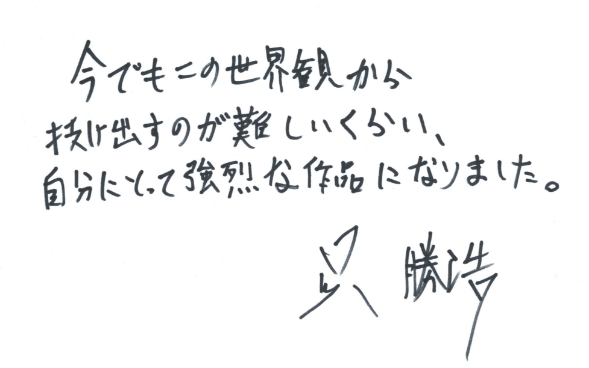 今でもこの世界観から
抜け出すのが難しいくらい、
自分にとって強烈な作品になりました。
呉 勝浩